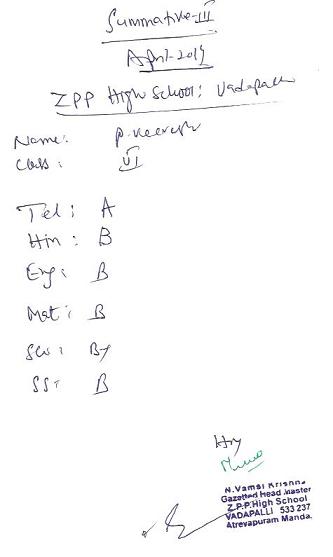 Summative-III
April-2019
ZPP High School; Vadapalli
Name:
Class: VI
Tel: A
Hin: B
Eng: B
Mat: B
Sci: B+
SS: B
N.Vamsi Krishna
Gazetted Head Master
Z.P.P.High School
VADAPALLI 533 237
Atreyapuram Manda.